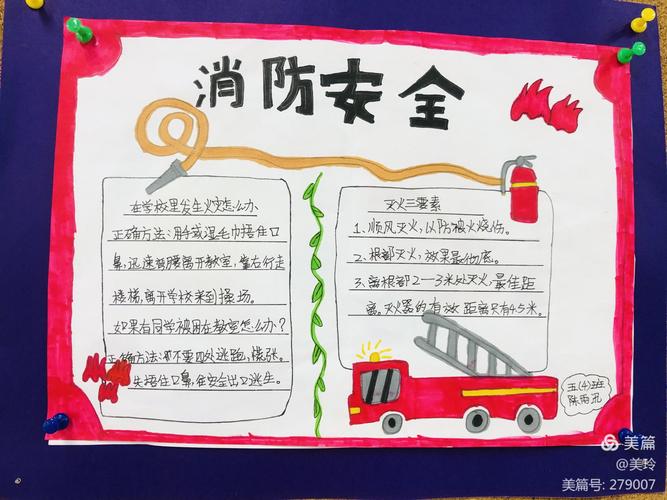 消防安全
在学校里发生火灾怎么办
正确方法:用手或湿毛巾捂住口
鼻,迅速弯腰离开教室,靠右行走
楼梯,离开学校来到操场。
如果有同学被困在教室怎么办?
正确方法:不要四处逃跑,慌张。
先捂住口鼻,在安全出口逃生。
灭火三要素
1、顺风灭火,以防被火烧伤。
2、根部灭火,效果最彻底。
3、离根部2—3米处灭火,最佳距
离。灭火器的有效距离只有4.5米。
五(4)班
陈
美篇
@美玲
美篇号: 279007